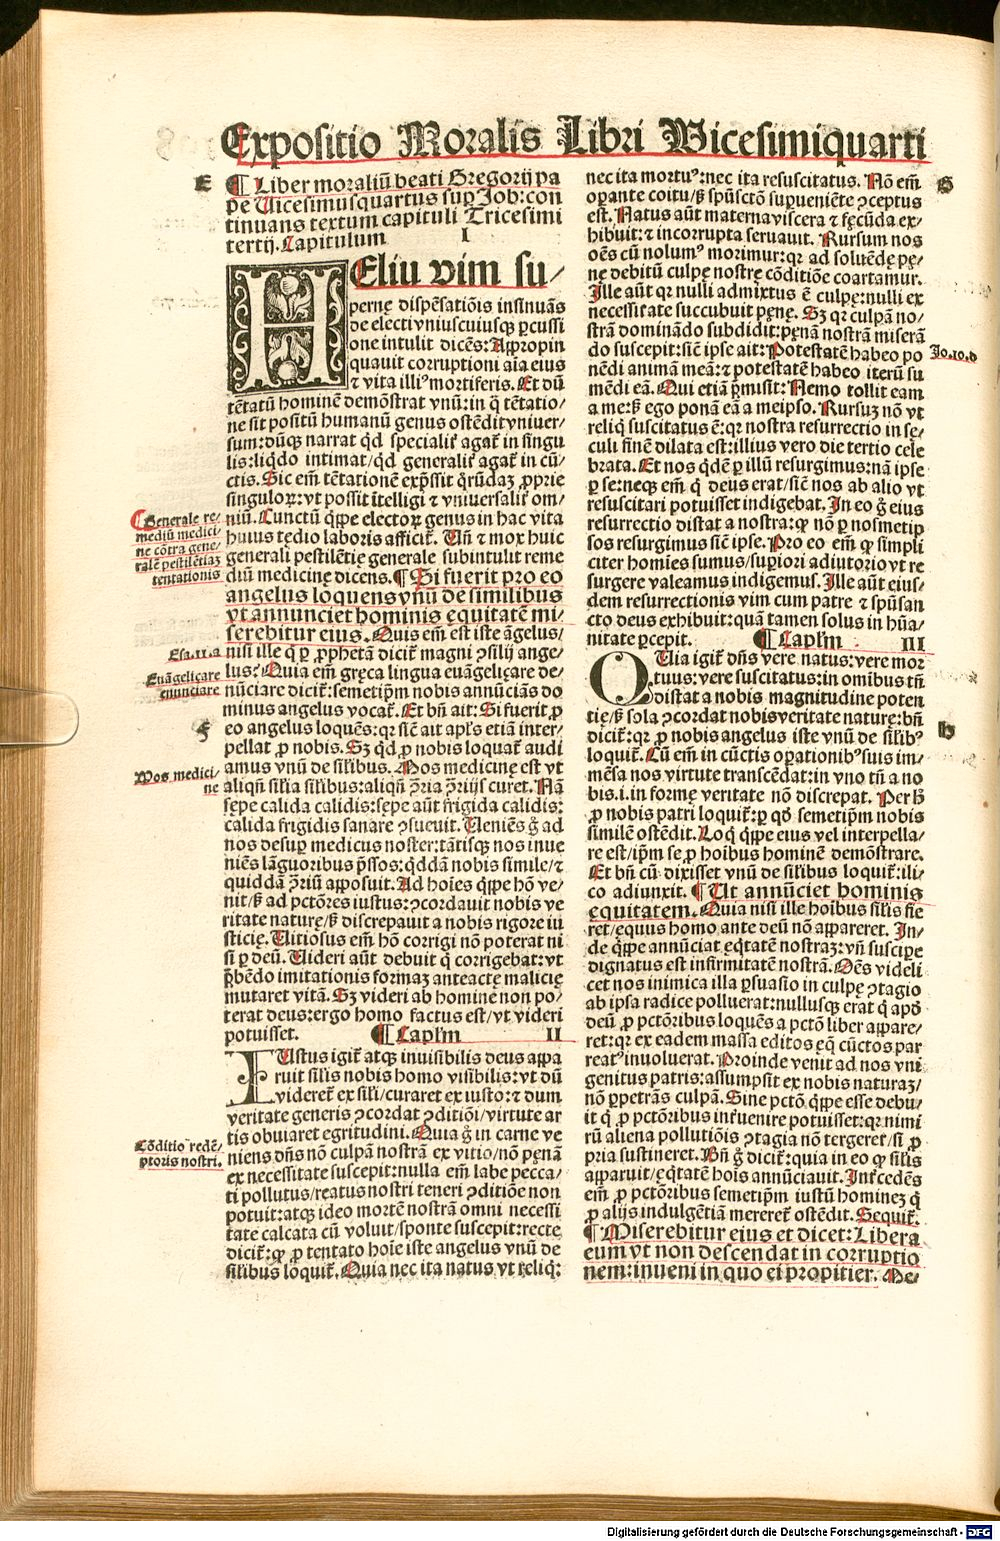 Expositio Moralis Libri Vicesimiquarti
E
¶ Liber moraliū beati Gregorij pa
pe Vicesimusquartus sup Job: con
tinuans textum capituli Tricesimi
tertij. Capitulum I
HEliu vim su/
pernę dispēsatiōis insinuās
de electi vniuscuiusqꝫ ꝑcussi
one intulit dicēs: Appropin
quauit corruptioni aīa eius
⁊ vita illiꝰ mortiferis. Et dū
tētatū hominē demōstrat vnū: in q̄ tētatio/
ne sit positū humanū genus ostēdit vniuer/
sum: dūqꝫ narrat qd̄ specialiẜ agat̃ in singu
lis: liq̄do intimat/ qd̄ generaliẜ agat̃ in cū/
ctis. Sic em̄ tētationē exp̄ssit q̄rūdaꝫ ꝓprie
singuloꝝ: vt possit ītelligi ⁊ vniuersaliẜ om/
niū. Cunctū q̄ppe electoꝝ genus in hac vita
huius tędio laboris afficit̃. Vn̄ ⁊ mox huic
generali pestilētię generale subintulit reme
diū medicinę dicens. ¶ Si fuerit pro eo
angelus loquens vnū de similibus
vt annunciet hominis ęquitatē mi/
serebitur eius. Quis em̄ est iste āgelus/
nisi ille q̄ ꝑ ꝓphetā dicit̃ magni ꝯsilij ange/
lus? Quia em̄ gręca lingua euāgelicare de/
nūciare dicit̃: semetip̄m nobis annūciās do
minus angelus vocat̃. Et bn̄ ait: Si fuerit ꝓ
eo angelus loquēs: qꝛ sic̄ ait apl̄s etiā inter/
pellat ꝓ nobis. Sꝫ qd̄ ꝓ nobis loquat̃ audi
amus vnū de sil̄ibus. Mos medicinę est vt
aliqn̄ sil̄ia sil̄ibus: aliqn̄ ꝯ̄ria ꝯ̄rijs curet. Nā
sępe calida calidis: sępe aūt frigida calidis:
calida frigidis sanare ꝯsueuit. Veniēs g̊ ad
nos desuꝑ medicus noster: tātisqꝫ nos inue
niēs lāguoribus p̄ssos: q̄ddā nobis simile/ ⁊
quiddā ꝯ̄riū apposuit. Ad hoīes q̄ppe hō ve/
nit/ ß ad pctōres iustus: ꝯcordauit nobis ve
ritate naturę/ ß discrepauit a nobis rigore iu
sticię. Vitiosus em̄ hō corrigi nō poterat ni
si ꝑ deū. Videri aūt debuit q̄ corrigebat: vt
p̄bēdo imitationis formaꝫ anteactę malicię
mutaret vitā. Sꝫ videri ab homine non po/
terat deus: ergo homo factus est/ vt videri
potuisset. ¶ Capl̄m II
IUstus igit̃ atqꝫ inuisibilis deus appa
ruit sil̄is nobis homo visibilis: vt dū
videret̃ ex sil̄i/ curaret ex iusto: ⁊ dum
veritate generis ꝯcordat ꝯditiōi/ virtute ar
tis obuiaret egritudini. Quia g̊ in carne ve
niens dn̄s nō culpā nostrā ex vitio/ nō pęnā
ex necessitate suscepit: nulla em̄ labe pecca/
ti pollutus/ reatus nostri teneri ꝯditiōe non
potuit: atqꝫ ideo mortē nostrā omni necessi
tate calcata cū voluit/ sponte suscepit: recte
dicit̃: ꝙ ꝓ tentato hoīe iste angelus vnū de
sil̄ibus loquit̃. Quia nec ita natus vt reliq̄:
Generale re/
mediū medici/
ne cōtra gene/
ralē pestilētiaꝫ
tentationis
Esa.11.a
Euāgelicare
enunciare
F
Mos medici/
ne
Cōditio redē/
ptoris nostri.
nec ita mortuꝰ: nec ita resuscitatus. Nō em̄
oꝑante coitu/ ß spūsctō suꝑueniēte ꝯceptus
est. Natus aūt materna viscera ⁊ fęcūda ex/
hibuit: ⁊ incorrupta seruauit. Rursum nos
oēs cū nolumꝰ morimur: qꝛ ad soluēdę pę/
nę debitū culpę nostrę cōditiōe coartamur.
Ille aūt qꝛ nulli admixtus ē culpę: nulli ex
necessitate succubuit pęnę. Sꝫ qꝛ culpā no/
strā dominādo subdidit: pęnā nostrā miserā
do suscepit: sic̄ ipse ait: Potestatē habeo po
nēdi animā meā: ⁊ potestatē habeo iterū su
mēdi eā. Qui etiā p̄misit: Nemo tollit eam
a me: ß ego ponā eā a meipso. Rursuꝫ nō vt
reliq̄ suscitatus ē: qꝛ nostra resurrectio in sę/
culi finē dilata est: illius vero die tertio cele
brata. Et nos q̄dē ꝑ illū resurgimus: nā ipse
ꝑ se: neqꝫ em̄ q̄ deus erat/ sic̄ nos ab alio vt
resuscitari potuisset indigebat. In eo g̊ eius
resurrectio distat a nostra: ꝙ nō ꝑ nosmetip
sos resurgimus sic̄ ipse. Pro eo em̄ ꝙ simpli
citer homīes sumus/ suꝑiori adiutorio vt re
surgere valeamus indigemus. Ille aūt eius/
dem resurrectionis vim cum patre ⁊ spūsan
cto deus exhibuit: quā tamen solus in hūa/
nitate ꝑcepit. ¶ Capl̄m III
QUia igit̃ dn̄s vere natus: vere mor
tuus: vere suscitatus: in omībus tn̄
distat a nobis magnitudine poten
tię/ ß sola ꝯcordat nobis veritate naturę: bn̄
dicit̃: qꝛ ꝓ nobis angelus iste vnū de sil̄ibꝰ
loquit̃. Cū em̄ in cūctis oꝑationibꝰ suis im/
mēsa nos virtute transcēdat: in vno tn̄ a no
bis .i. in formę veritate nō discrepat. Per hͦ
ꝓ nobis patri loquit̃: ꝑ qd̄ semetip̄m nobis
similē ostēdit. Loq̄ q̄ppe eius vel interpella/
re est/ ip̄m se ꝓ hoībus hominē demōstrare.
Et bn̄ cū dixisset vnū de sil̄ibus loquit̃: ili/
co adiunxit. ¶ Vt annūciet hominis
ęquitatem. Quia nisi ille hoībus sil̄is fie
ret/ ęquus homo ante deū nō appareret. In/
de q̄ppe annūciat ęq̄tatē nostraꝫ: vn̄ suscipe
dignatus est infirmitatē nostrā. Oēs videli
cet nos inimica illa ꝑsuasio in culpę ꝯtagio
ab ipsa radice polluerat: nullusqꝫ erat q̄ apd̄
deū ꝓ pctōribus loquēs a pctō liber appare/
ret: qꝛ ex eadem massa editos ęq̄ cūctos par
reatꝰ inuoluerat. Proinde venit ad nos vni
genitus patris: assumpsit ex nobis naturaꝫ/
nō ꝑpetrās culpā. Sine pctō q̄ppe esse debu/
it q̄ ꝓ pctōribus int̃uenire potuisset: qꝛ nimi
rū aliena pollutiōis ꝯtagia nō tergeret/ si ꝓ
pria sustineret. Bn̄ g̊ dicit̃: quia in eo ꝙ sil̄is
apparuit/ ęq̄tatē hoīs annūciauit. Int̃cedēs
em̄ ꝓ pctōribus semetip̄m iustū homineꝫ q̄
ꝓ alijs indulgētiā mereret̃ ostēdit. Sequit̃.
¶ Miserebitur eius et dicet: Libera
eum vt non descendat in corruptio
nem: inueni in quo ei propitier. Ne/
G
Jo.10.d
H
Digitalisierung gefördert durch die Deutsche Forschungsgemeinschaft - DFG